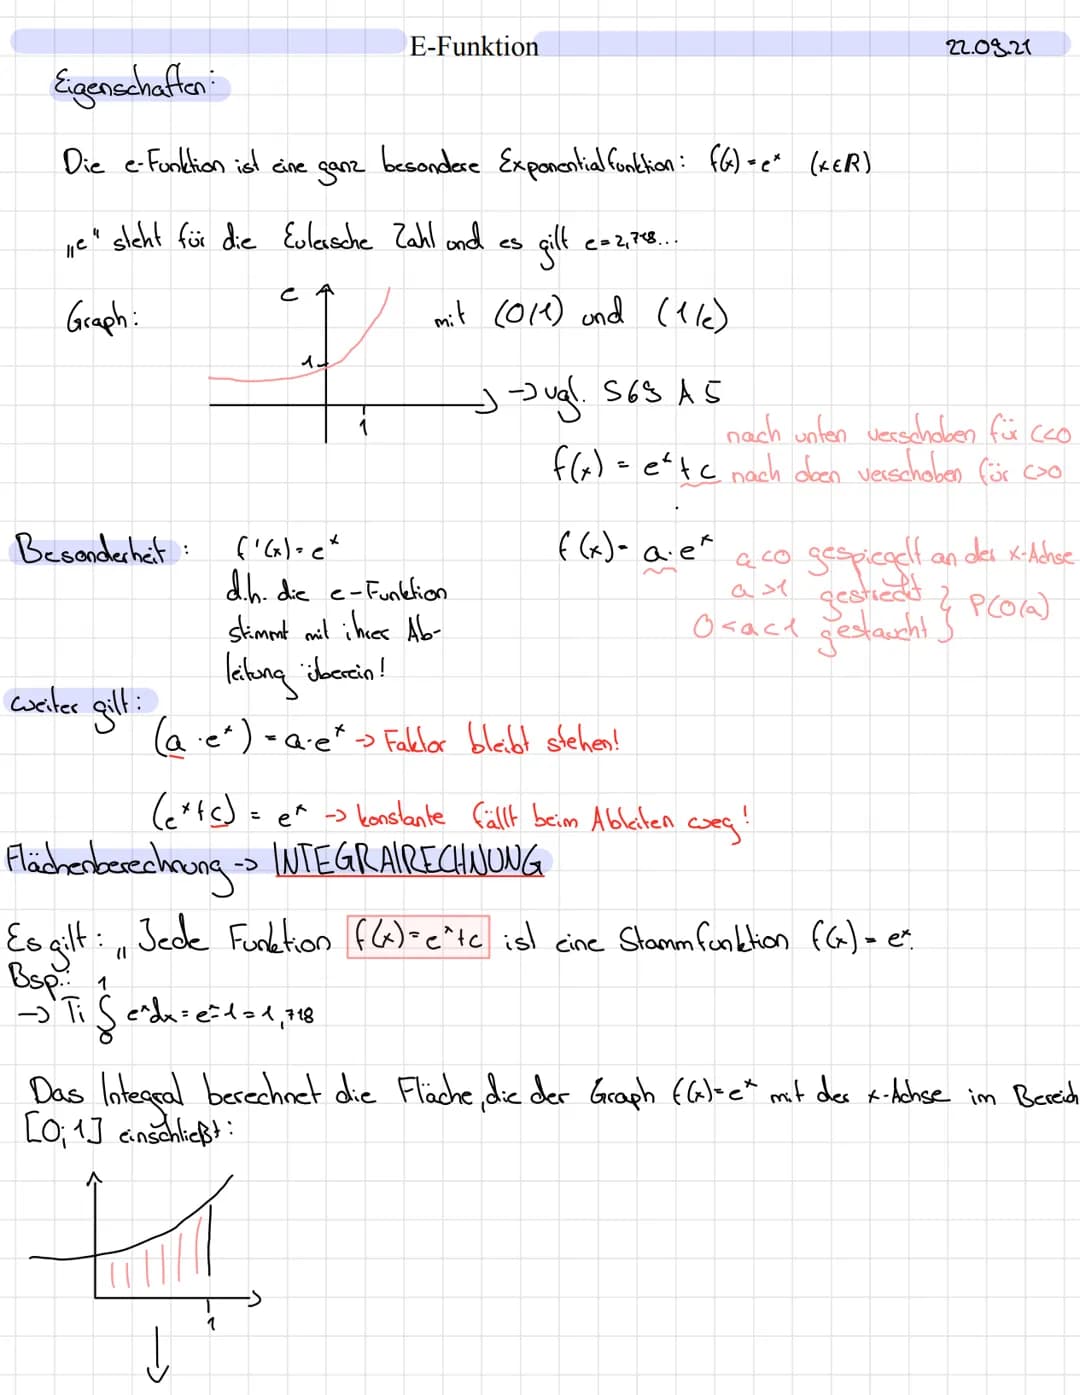 E-Funktion 22.09.21
Eigenschaften:
Die e-Funktion ist eine ganz besondere Exponentialfunktion: f(x)=e^x (x∈R)
„e" steht für die Eulersche Zahl und es gilt e=2,718...
Graph: e mit (0/1) und (1/e)
1
1 → vgl. S69 A5
nach unten verschoben für c<0
f(x) = e^x+c nach oben verschoben für c>0
Besonderheit: f'(x)=e^x f(x)=a·e^x a<0 gespiegelt an der x-Achse
d.h. die e-Funktion a>1 gestreckt } P(0/a)
stimmt mit ihrer Ab- 0<a<1 gestaucht
leitung überein!
weiter gilt:
(a·e^x) = a·e^x → Faktor bleibt stehen!
(e^x+c) = e^x → konstante fällt beim Ableiten weg!
Flächenberechnung → INTEGRALRECHNUNG
Es gilt: „ Jede Funktion f(x)=e^x+c ist eine Stammfunktion f(x)=e^x.
Bsp.:
→ Ti ∫₀¹ e^x dx = e-1 = 1,718
Das Integral berechnet die Fläche, die der Graph f(x)=e^x mit der x-Achse im Bereich
[0;1] einschließt:
1